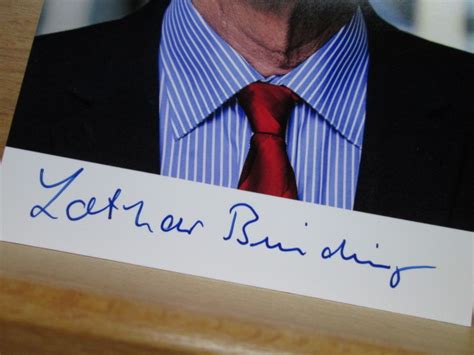 Lothar Binding